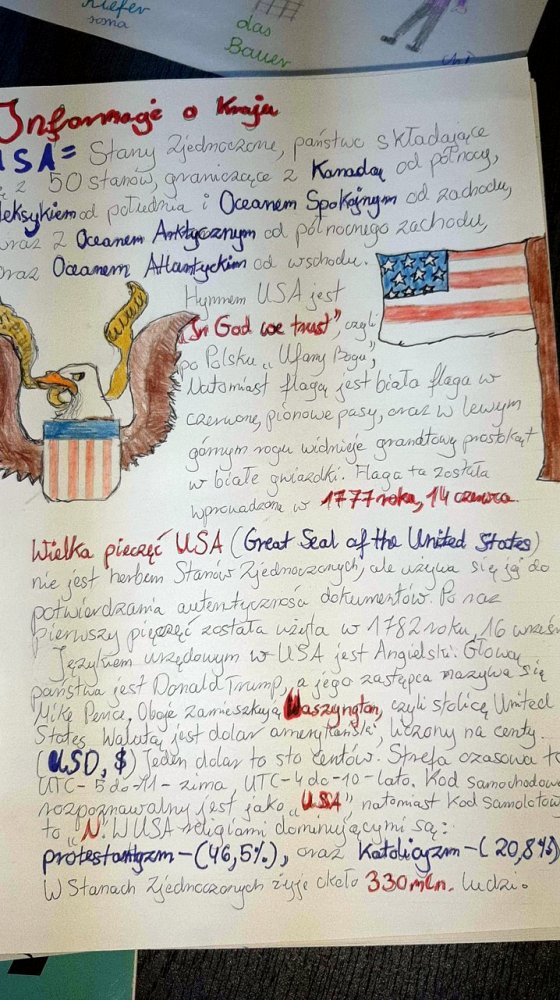 Kiefer
roma
das
Bauer
Informacje o Kraju
USA = Stany Zjednoczone, państwo składające
się z 50 stanów, graniczące z Kanadą od północy,
Meksykiem od południa i Oceanem Spokojnym od zachodu,
oraz z Oceanem Arktycznym od północnego zachodu,
oraz Oceanem Atlantyckim od wschodu.
Hymnem USA jest
"In God we trust", czyli
po Polsku „Ufamy Bogu",
Natomiast flagą jest biała flaga w
czerwone, pionowe pasy, oraz w lewym
górnym rogu widnieje granatowy prostokąt
w białe gwiazdki. Flaga ta została
wprowadzona w 1777 roku, 14 czerwca.
Wielka pieczęć USA (Great Seal of the United States)
nie jest herbem Stanów Zjednoczonych, ale używa się ją do
potwierdzania autentyczności dokumentów. Po raz
pierwszy pieczęć została użyta w 1782 roku, 16 wrześ
Językiem urzędowym w USA jest Angielski. Głową
państwa jest Donald Trump, a jego zastępca nazywa się
Mike Pence. Oboje zamieszkują Waszyngton, czyli stolicę United
States. Walutą jest dolar amerykański, liczony na centy.
(USD, $) Jeden dolar to sto centów. Strefa czasowa to
UTC-5 do -11 - zima, UTC-4 do -10 - lato. Kod samochodowy
rozpoznawalny jest jako „USA" natomiast kod samolotow
to „N". W USA religiami dominującymi są:
protestantyzm - (46,5%), oraz Katolicyzm - (20,8%)
W Stanach Zjednoczonych żyje około 330 mln. ludzi.